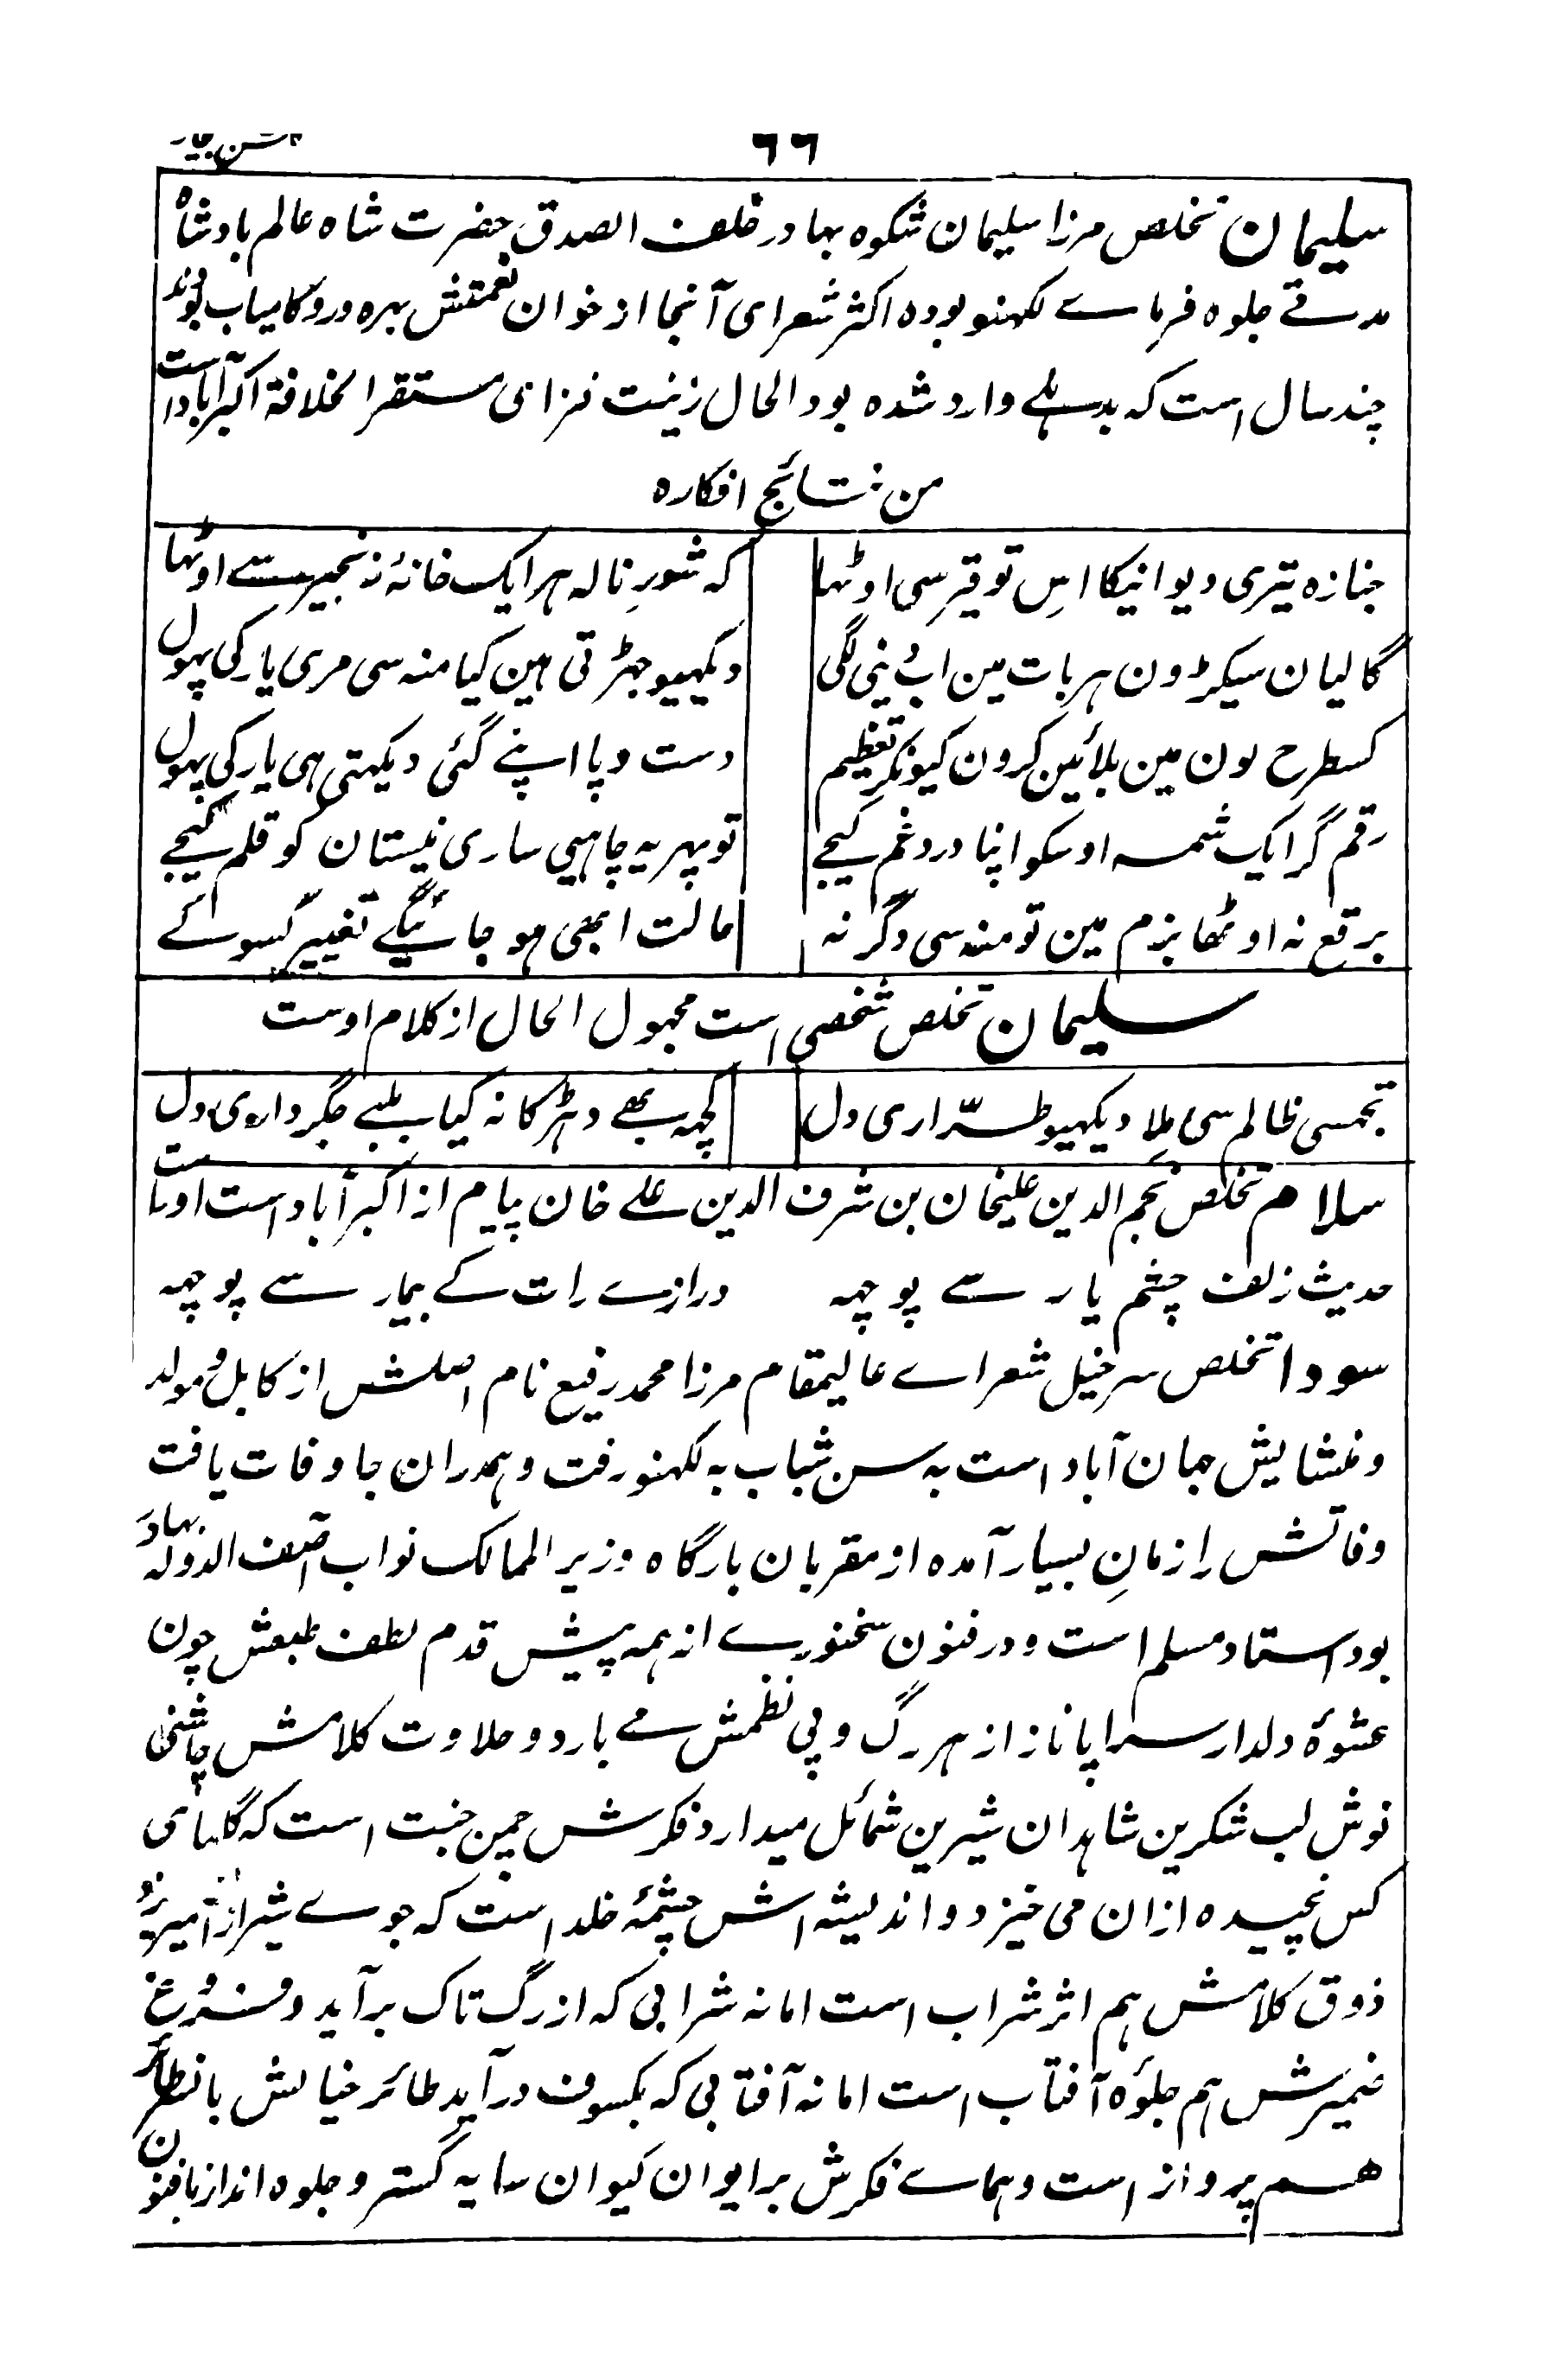 ٦٦
سلیمان تخلص مرزا سلیمان شکوہ بہادر خلف الصدق حضرت شاہ عالم بادشاہ
مدتے جلوہ فرماے لکہنو بودہ اکثر شعرای آنجا از خوان نعمتش بہرہ ور و کامیاب بودند
چند سال است کہ بدہلے وارد شدہ بود الحال زینت فزای مستقر الخلافۃ اکبرآباد است
من نتائج افکارہ
جنازہ تیری دیوانیکا اس توقیر سی اوٹہا کہ شورِ نالہ ہر ایک خانۂ زنجیر سے اوٹہا
گالیان سیکڑون ہر بات مین اب دینی لگی دیکہیو جہڑتی ہین کیا منہ سی مری یار کی پہول
کسطرح لون مین بلائین کرون کیونکر تعظیم دست و پا اپنے گئی دیکہتی ہی یار کی پہول
رقم گر ایک شمہ اوسکو اپنا درد غم کیجے تو پہر یہ چاہیی ساری نیستان کو قلم کیجے
برقع نہ اوٹھا بزم مین تو منہ سی وگرنہ حالت ابھی ہو جائیگے تغییر کسو کے
سلیمان تخلص شخصی است مجہول الحال از کلام اوست
تجہسی ظالم سی مِلا دیکہیو طرّاری دل کچہہ بھے دہڑکا نہ کیا بلبے جگرداری دل
سلام تخلص نجم الدین علیخان بن شرف الدین علے خان پیام از اکبرآباد است اوراست
حدیث زلف چشم یار سے پوچہہ درازے رات کے بیمار سے پوچہہ
سودا تخلص سرخیل شعراے عالیمقام مرزا محمد رفیع نام اصلش از کابل و مولد
و منشایش جہان آباد است بہ سن شباب بہ لکہنو رفت و ہمدران جا وفات یافت
وفاتش را زمانِ بسیار آمدہ از مقربان بارگاہ وزیر الممالک نواب آصف الدولہ بہادر
بود استاد مسلم است و در فنون سخنورے از ہمہ پیش قدم لطف طبعش چون
عشوۂ دلدار سراپا ناز از ہر رگ و پی نظمش مے بارد و حلاوت کلامش چاشنی
نوش لب شکرین شاہدان شیرین شمائل میدارد فکرش چمن جنت است کہ گلہای
کس نچیدہ ازان می خیزد و اندیشہ اش چشمۂ خلد است کہ جوے شیر ازان میریزد
ذوق کلامش ہم اثر شراب است اما نہ شرابی کہ از رگ تاک برآید و فروغ
ضمیرش ہم جلوۂ آفتاب است اما نہ آفتابی کہ بکسوف درآید طائر خیالش با نسطائر
ہم پرواز است و ہماے فکرش بر ایوان کیوان سایہ گستر و جلوہ انداز با فنون